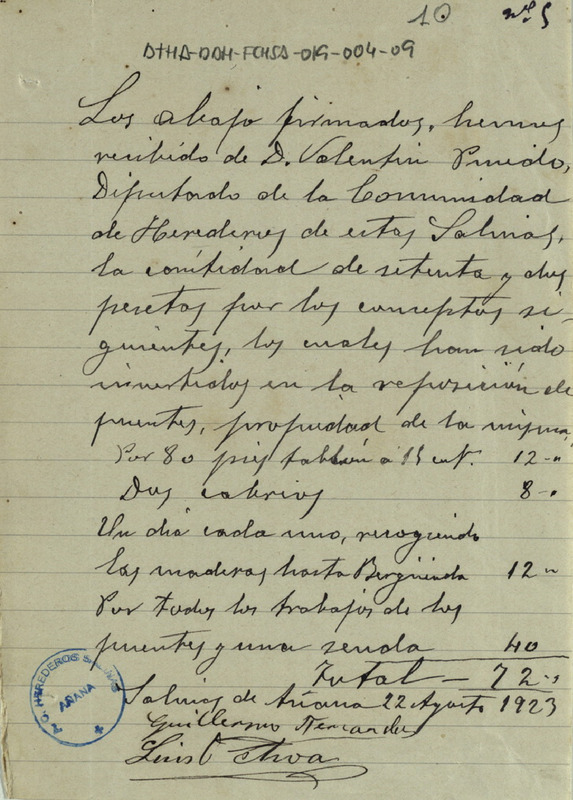 10 nº 5
ATHA-DAH-FCHSA-019-004-09
Los abajo firmados, hemos
recibido de D. Valentin Pinedo,
Diputado de la Comunidad
de Herederos de estas Salinas,
la cantidad de setenta y dos
pesetas por los conceptos si-
guientes, los cuales han sido
invertidos en la reposición de
puentes, propiedad de la misma,
Por 80 pies tablón a 15 cnt. 12-"
Dos cabrios 8-"
Un dia cada uno, recogiendo
las maderas hasta Bergüenda 12"
Por todos los trabajos de los
puentes y una senda 40
Total - 72-"
Salinas de Añana 22 Agosto 1923
HEREDEROS SALINAS
AÑANA
Guillermo Fernandez
Luis